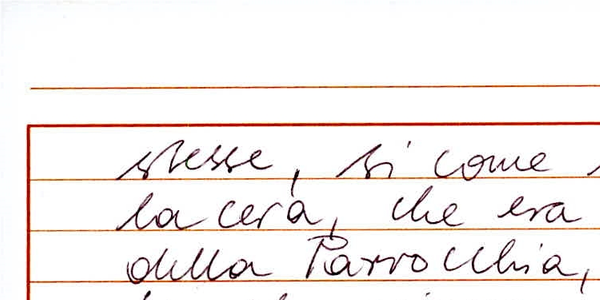 stesse, si come
la cera, che era
della Parrocchia,